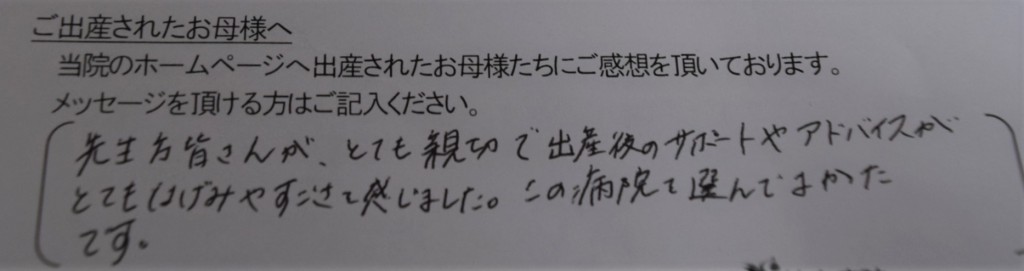 ご出産されたお母様へ
当院のホームページへ出産されたお母様たちにご感想を頂いております。
メッセージを頂ける方はご記入ください。
先生方皆さんが、とても親切で出産後のサポートやアドバイスが
とてもはげみやすごさを感じました。この病院で選んでよかった
です。